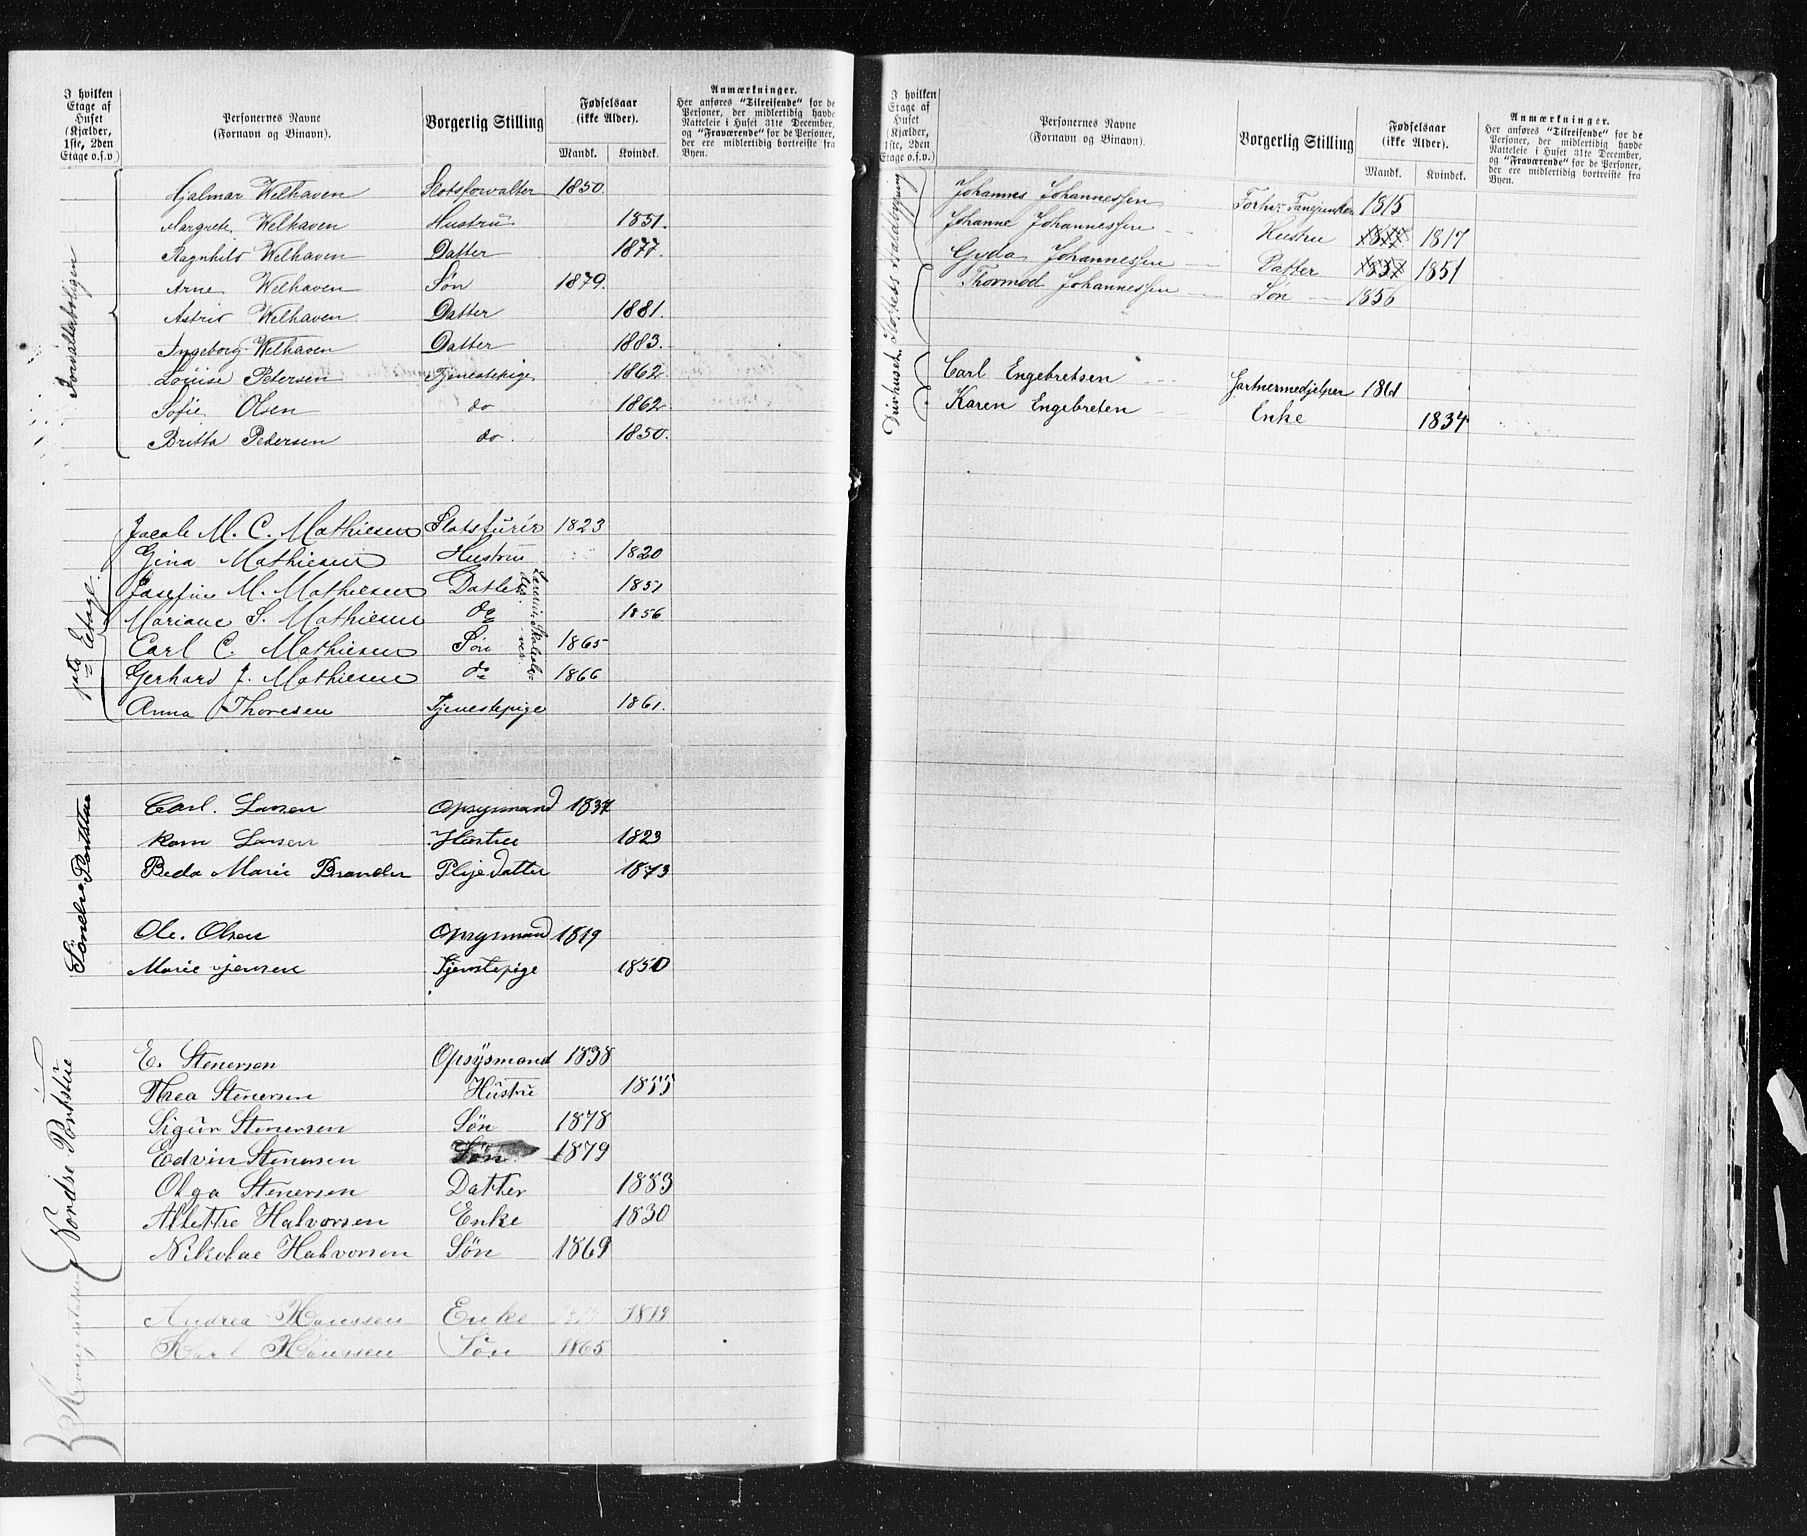 I hvilken Etage af Huset (Kjælder, 1ste, 2den Etage o.s.v.)
Personernes Navne (Fornavn og Binavn).
Borgerlig Stilling
Fødselsaar (ikke Alder).
Mandk. Kvindek.
Anmærkninger.
Her anføres "Tilreisende" for de Personer, der midlertidig havde Natteleie i Huset 31te December, og "Fraværende" for de Personer, der ere midlertidig bortreiste fra Byen.
Forvalterboligen
Hjalmar Welhaven Slotsforvalter 1850.
Margrete Welhaven Hustru 1851.
Ragnhild Welhaven Datter 1877.
Arne Welhaven Søn 1879.
Astrid Welhaven Datter 1881.
Ingeborg Welhaven Datter 1883.
Louise Petersen Tjenestepige 1862.
Sofie Olsen do 1862.
Britta Pedersen do. 1850.
Etage.
Jacob M. C. Mathiesen Slotsfurér 1823
Gina Mathiesen Hustru 1820
Josefine M. Mathiesen Datter 1851
Mariane S. Mathiesen do 1856
Carl C. Mathiesen Søn 1865
Gerhard J. Mathiesen do 1866
Anna Thoresen Tjenestepige 1861.
Søndre Portstue
Carl. Larsen Opsysmand 1837
Karn Larsen Hustru 1823
Beda Marie Brander Plejedatter 1873
Ole. Olsen Opsysmand 1819
Marie Jensen Tjenstepige 1850
Nordre Portstue
E. Stenersen Opsÿsmand 1838
Thea Stenersen Hustru 1855
Sigur Stenersen Søn 1878
Edvin Stenersen Søn 1879
Olga Stenersen Datter 1883
Alettie Halvorsen Enke 1830
Nikolae Halvorsen Søn 1869
Andrea Hanssen Enke 1819
Karl Hanssen Søn 1865
I hvilken Etage af Huset (Kjælder, 1ste, 2den Etage o.s.v.)
Personernes Navne (Fornavn og Binavn).
Borgerlig Stilling
Fødselsaar (ikke Alder).
Mandk. Kvindek.
Anmærkninger.
Her anføres "Tilreisende" for de Personer, der midlertidig havde Natteleie i Huset 31te December, og "Fraværende" for de Personer, der ere midlertidig bortreiste fra Byen.
Johannes Johannessen Forhv. 1815
Johanne Johannessen Hustru 1817
Gyda Johannessen Datter 1851
Thormod Johannessen Søn 1856
Drivhuset
Carl Engebretsen Gartnermedjelper 1861
Karen Engebreten Enke 1834